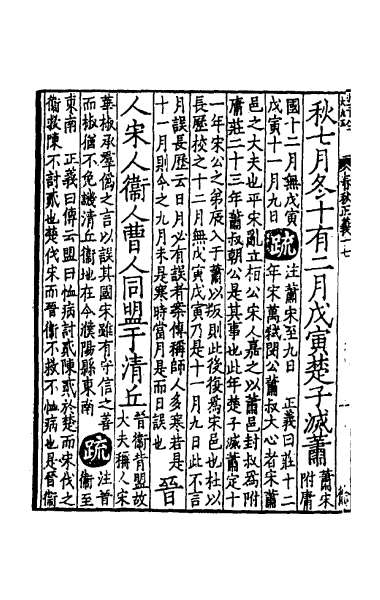 春秋正義十七
秋七月冬十有二月戊寅楚子滅蕭蕭宋附庸
國十二月無戊寅
戊寅十一月九日疏注蕭宋至九日 正義曰莊十二
年宋萬弒閔公蕭叔大心者宋蕭
邑之大夫也平宋亂立桓公宋人嘉之以蕭邑封叔爲附
庸莊二十三年蕭叔朝公是其事也此年楚子滅蕭定十
一年宋公之弟辰入于蕭以叛則此後復爲宋邑也杜以
長歷校之十二月無戊寅戊寅乃是十一月九日此不言
月誤長歷云日月必有誤者案傳稱師人多寒若是
十一月則今之九月未是寒時當月是而日誤也 晉
人宋人衞人曹人同盟于清丘晉衞背盟故大夫稱人宋
華椒承羣僞之言以誤其國宋雖有守信之善
而椒猶不免譏清丘衞地在今濮陽縣東南疏注晉衞至
東南 正義曰傳云盟曰恤病討貳陳貳於楚而宋伐之
衞救陳不討貳也楚伐宋而晉衞不救不恤病也是晉衞